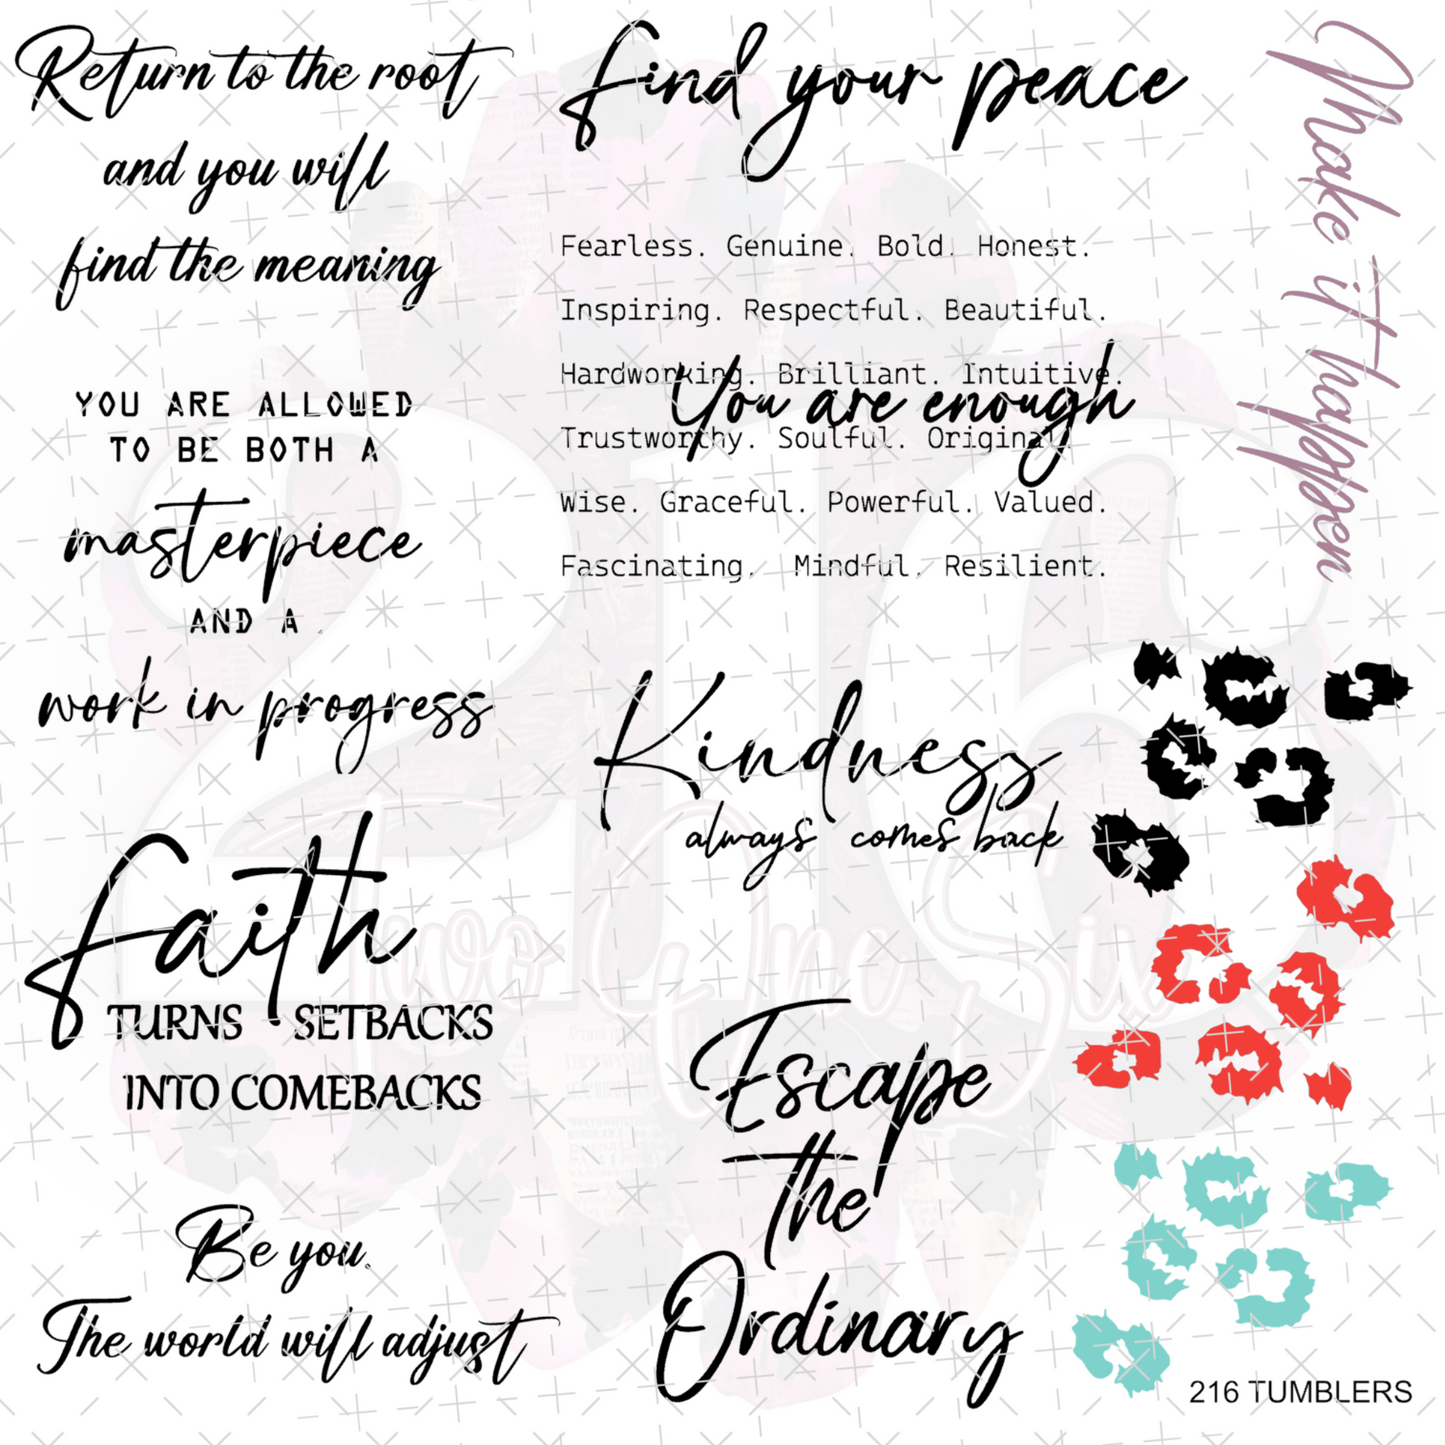 Return to the root
and you will
find the meaning
YOU ARE ALLOWED
TO BE BOTH A
masterpiece
AND A
work in progress
Faith
TURNS SETBACKS
INTO COMEBACKS
Be you.
The world will adjust
find your peace
Fearless. Genuine. Bold. Honest.
Inspiring. Respectful. Beautiful.
Hardworking. Brilliant. Intuitive.
You are enough
Trustworthy. Soulful. Original.
Wise. Graceful. Powerful. Valued.
Fascinating. Mindful. Resilient.
Kindness
always comes back
Escape
the
Ordinary
Make it happen
216
Two One Six
216 TUMBLERS